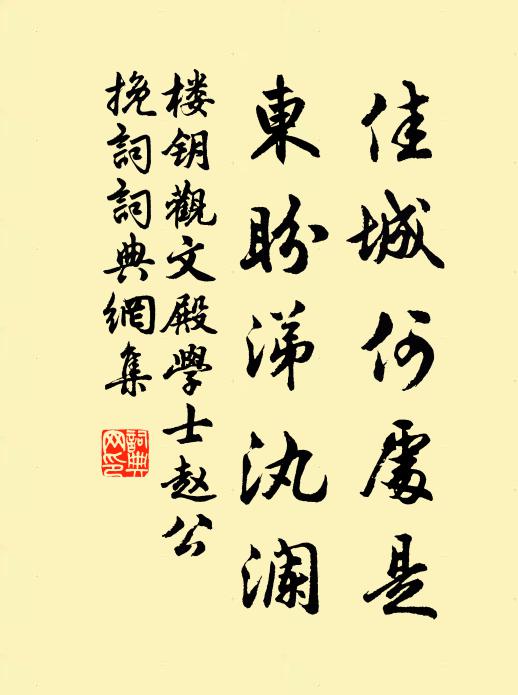 佳城何處是
東盼涕汍澜
楼钥觀文殿學士赵公
挽詞詞典網集
詞典网印